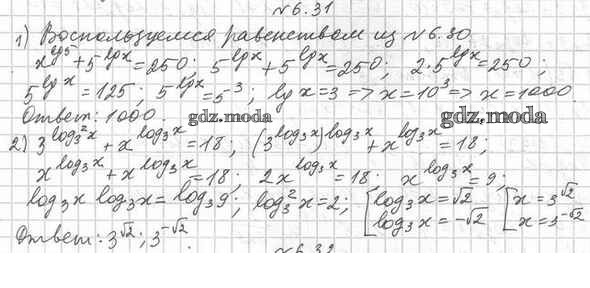 №6.31
1) Воспользуемся равенством из №6.30
x^{lg5} + 5^{lgx} = 250; 5^{lgx} + 5^{lgx} = 250; 2·5^{lgx} = 250;
5^{lgx} = 125; 5^{lgx} = 5^3; lgx = 3 => x = 10^3 => x = 1000.
Ответ: 1000.
gdz.moda
gdz.moda
2) 3^{log_3^2 x} + x^{log_3 x} = 18; (3^{log_3 x})^{log_3 x} + x^{log_3 x} = 18;
x^{log_3 x} + x^{log_3 x} = 18; 2x^{log_3 x} = 18; x^{log_3 x} = 9;
log_3 x log_3 x = log_3 9; log_3^2 x = 2; [log_3 x = √2 [x = 3^{√2}
log_3 x = -√2 x = 3^{-√2}
Ответ: 3^{√2}; 3^{-√2}
№6.32